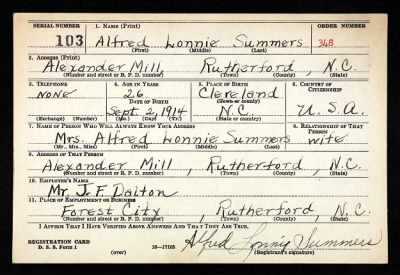 SERIAL NUMBER 1. NAME (Print) ORDER NUMBER
103 Alfred Lonnie Summers 348
(First) (Middle) (Last)
2. ADDRESS (Print)
Alexander Mill, Rutherford, N.C.
(Number and street or R. F. D. number) (Town) (County) (State)
3. TELEPHONE 4. AGE IN YEARS 5. PLACE OF BIRTH 6. COUNTRY OF CITIZENSHIP
None 26 Cleveland
DATE OF BIRTH (Town or county)
Sept. 2, 1914 N.C. U.S.A.
(Exchange) (Number) (Mo.) (Day) (Yr.) (State or country)
7. NAME OF PERSON WHO WILL ALWAYS KNOW YOUR ADDRESS 8. RELATIONSHIP OF THAT PERSON
Mrs. Alfred Lonnie Summers wife
(Mr., Mrs., Miss) (First) (Middle) (Last)
9. ADDRESS OF THAT PERSON
Alexander Mill, Rutherford, N.C.
(Number and street or R. F. D. number) (Town) (County) (State)
10. EMPLOYER'S NAME
Mr. J. F. Dalton
11. PLACE OF EMPLOYMENT OR BUSINESS
Forest City, Rutherford, N.C.
(Number and street or R. F. D. number) (Town) (County) (State)
I AFFIRM THAT I HAVE VERIFIED ABOVE ANSWERS AND THAT THEY ARE TRUE.
REGISTRATION CARD
D. S. S. Form 1 (over) 16—17105 Alfred Lonny Summers
(Registrant's signature)